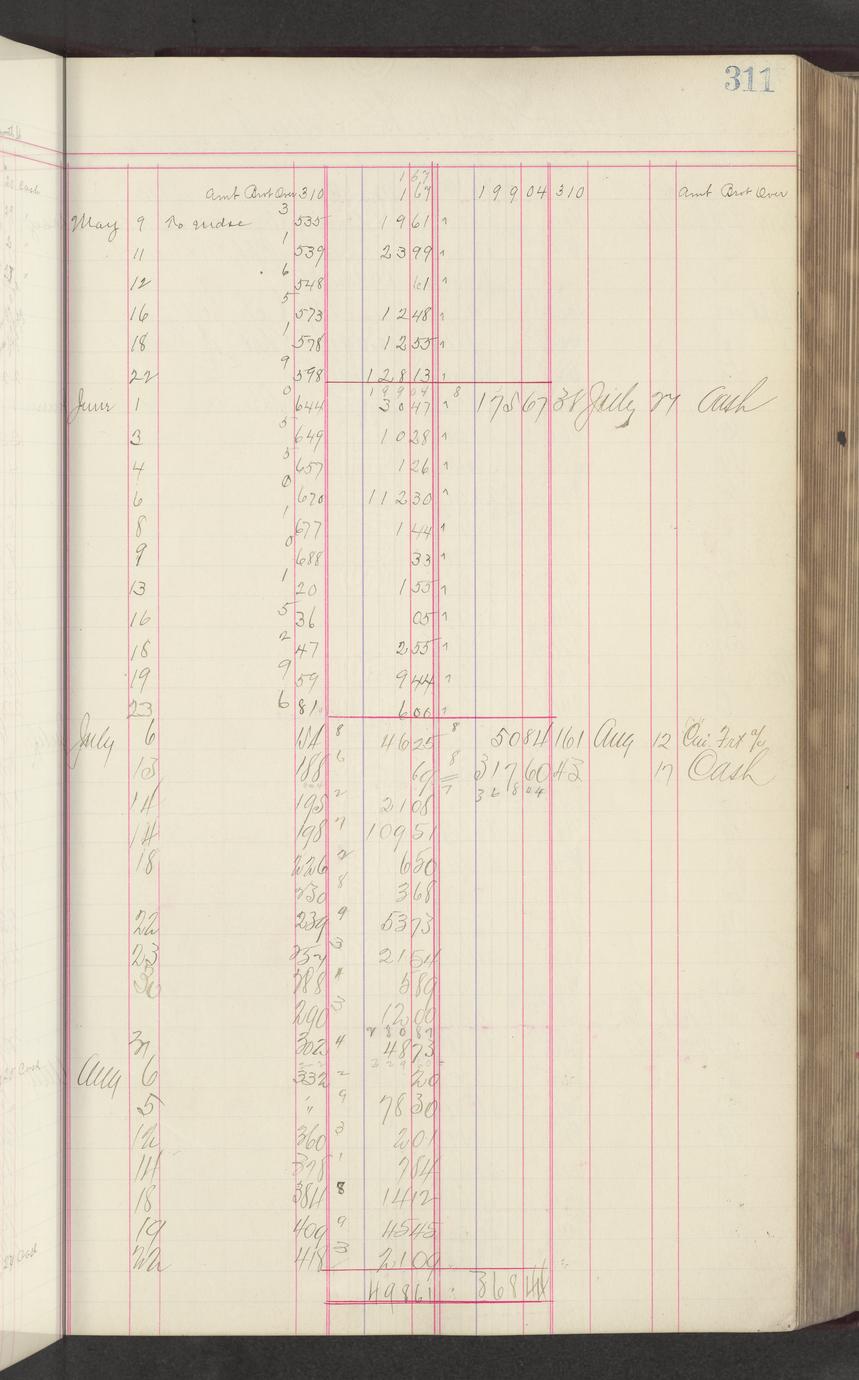 311
1 67
Amt Brot Over 310 1 67 199 04 310 Amt Brot Over
May 9 To mdse 3 535 19 61
11 1 539 23 99
12 6 548 61
16 5 573 12 48
18 1 578 12 55
22 9 598 128 13
199 04
June 1 0 644 30 47 8 175 67 38 July 27 Cash
3 5 649 10 28
4 5 657 1 26
6 0 670 112 30
8 1 677 1 44
9 0 688 33
13 1 20 1 55
16 5 36 05
18 2 47 2 55
19 9 59 9 44
23 6 81 6 00
July 6 8 46 25 8 50 84 161 Aug 12
13 188 6 69 8 317 60 43 17 Cash
368 04
14 195 2 21 08
14 198 7 109 51
18 226 2 6 50
230 8 3 68
22 239 9 53 73
23 3 21 54
30 288 4 5 89
290 3 12 00
31 302 4 48 73
Aug 6 332 2 20
5 " 9 78 30
12 360 3 2 01
14 378 1 7 84
18 384 8 14 12
19 409 9 45 45
22 418 3 21 09
498 61 368 44